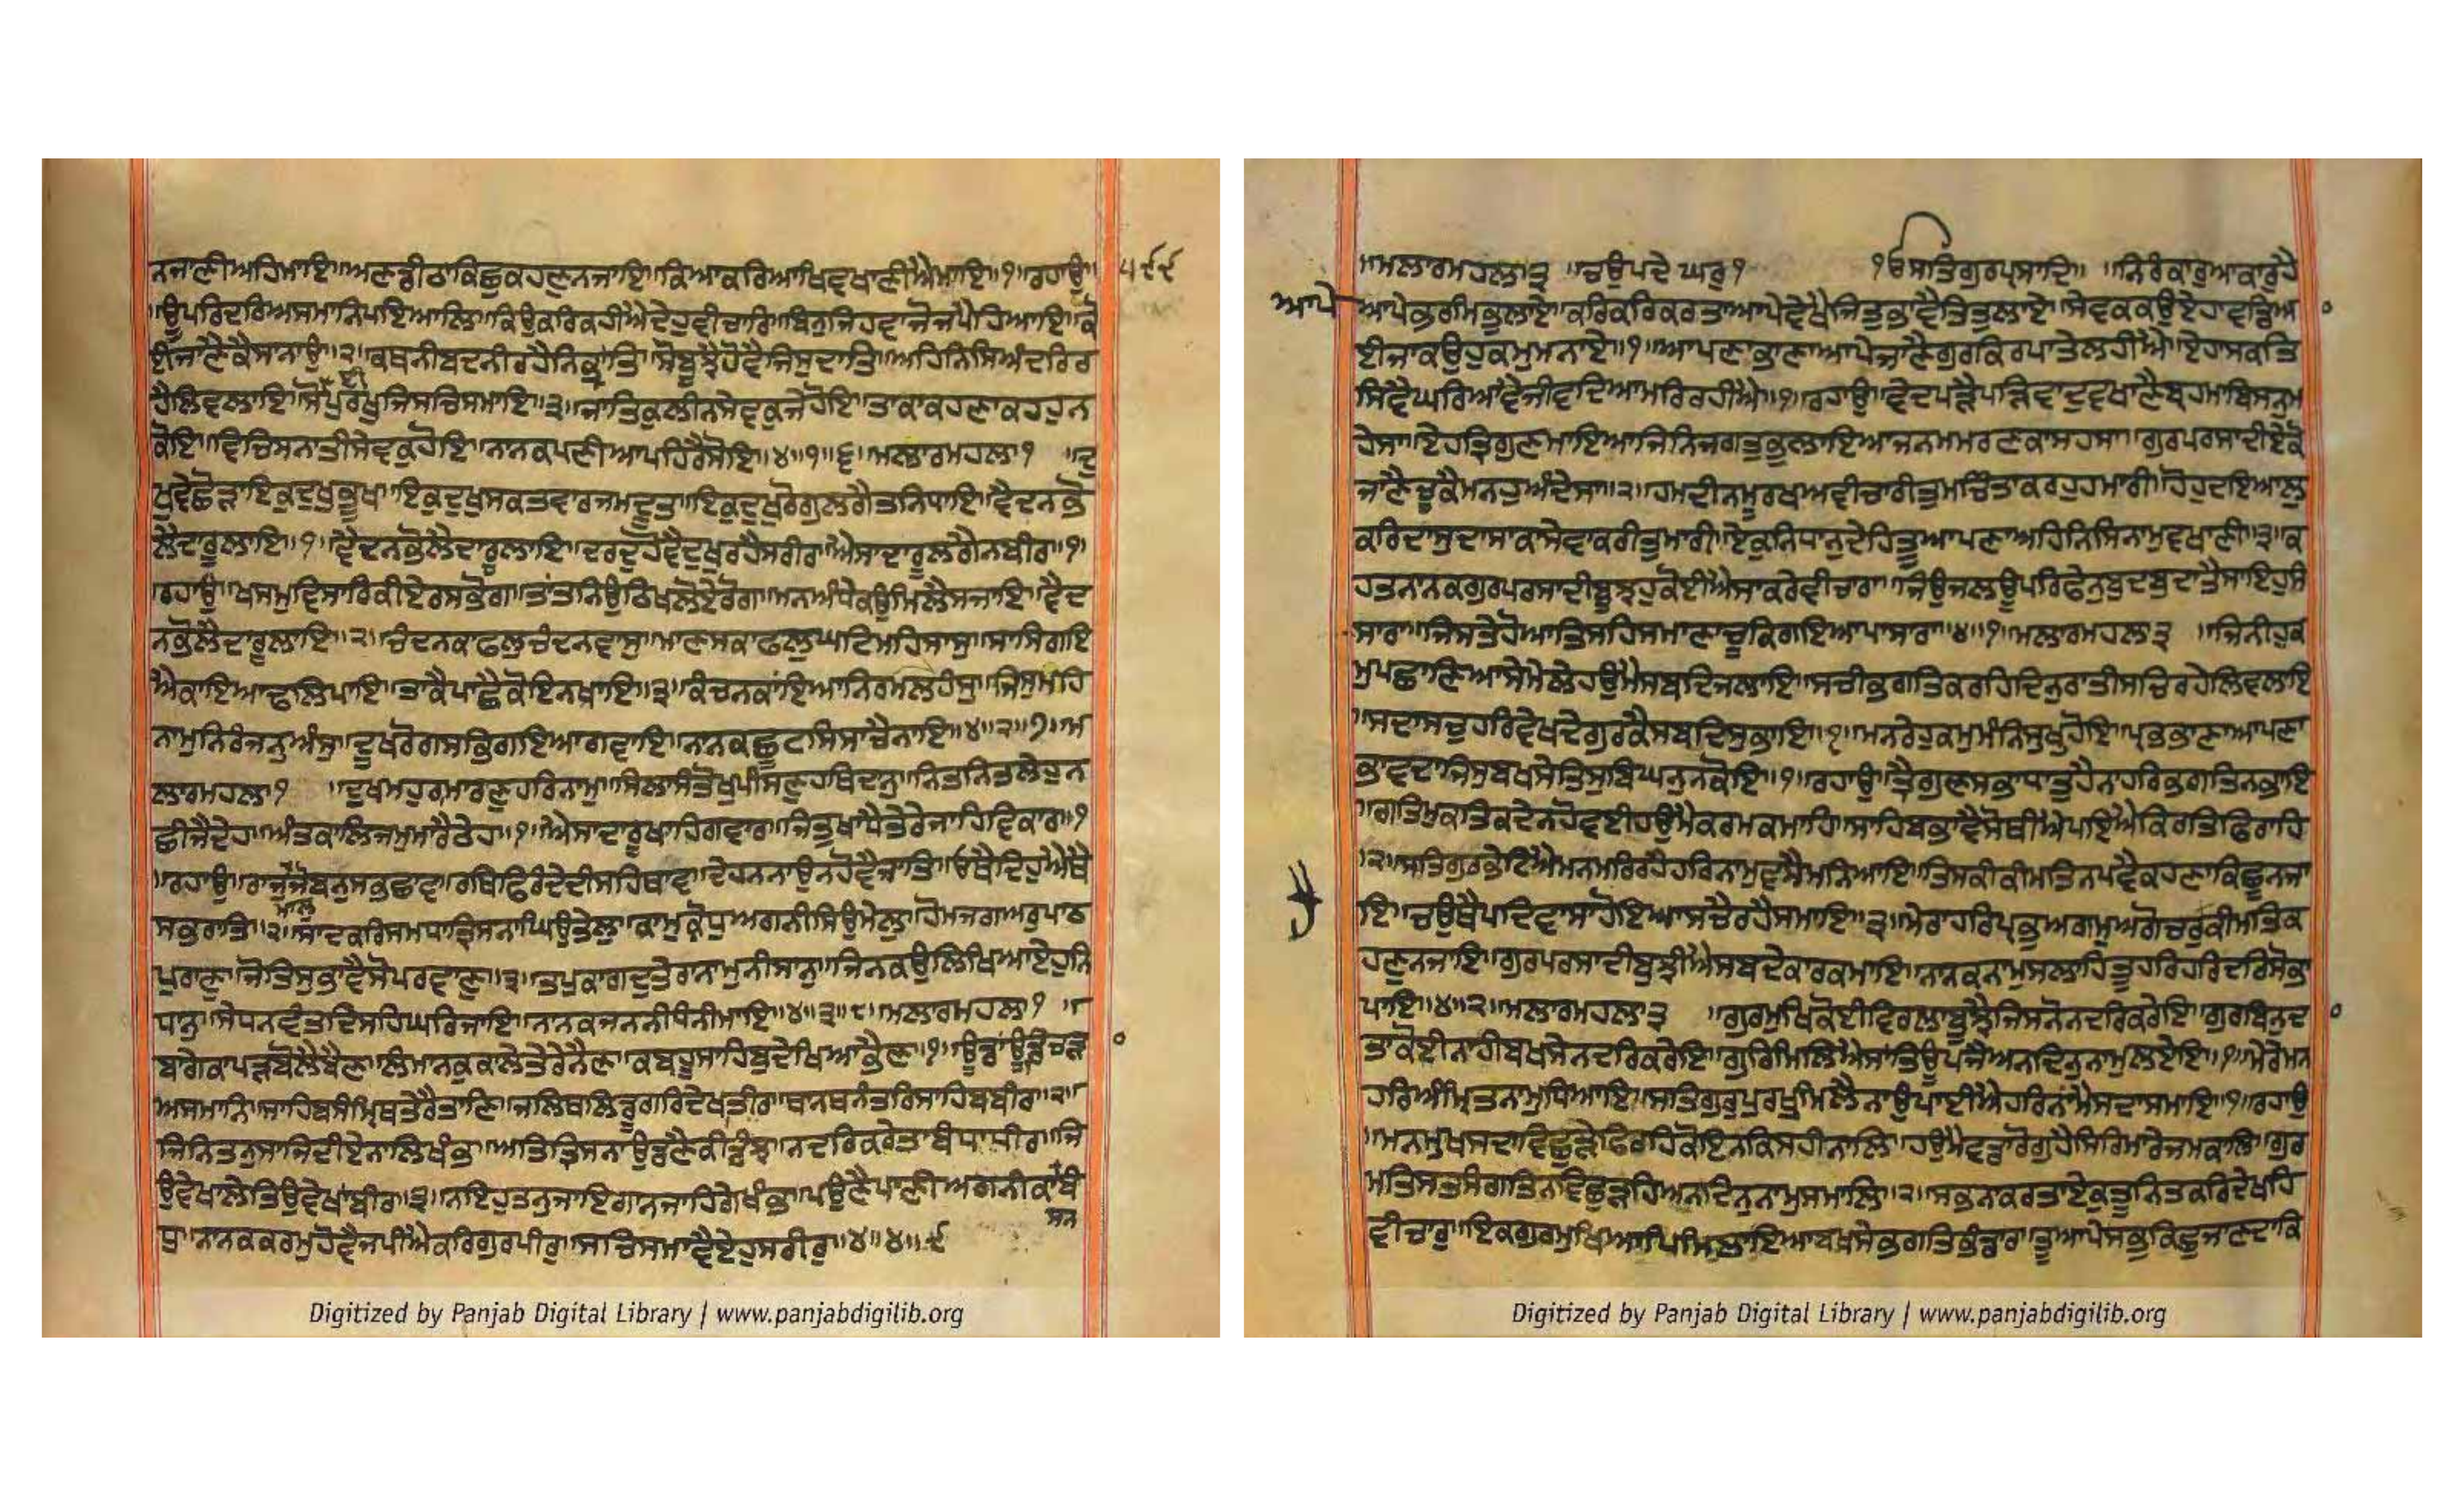 ਨਜਾਣੀਅਹਿਮਾਇ॥ਅਣਡੀਠਾਕਿਛੁਕਹਣੁਨਜਾਇ॥ਕਿਆਕਰਿਆਖਿਵਖਾਣੀਐਮਾਇ॥੧॥ਰਹਾਉ॥ ੫੯੯
॥ਊਪਰਿਦਰਿਅਸਮਾਨਿਪਇਆਲਿ॥ਕਿਉਕਰਿਕਹੀਐਦੇਹੁਵੀਚਾਰਿ॥ਬਿਨੁਜਿਹਵਾਜੋਜਪੈਹਿਆਇ॥ਕੋ
ਈਜਾਣੈਕੈਸਾਨਾਉ॥੨॥ਕਥਨੀਬਦਨੀਰਹੈਨਿਭ੍ਰਾਂਤਿ॥ਸੋਬੂਝੈਹੋਵੈਜਿਸੁਦਾਤਿ॥ਅਹਿਨਿਸਿਅੰਤਰਿਰ
ਹੈਲਿਵਲਾਇ॥ਸੋਈਪੁਰਖੁਜਿਸਚਿਸਮਾਇ॥੩॥ਜਾਤਿਕੁਲੀਨਸੇਵਕੁਜੇਹੋਇ॥ਤਾਕਾਕਹਣਾਕਹਹੁਨ
ਕੋਇ॥ਵਿਚਿਸਨਾਤੀਸੇਵਕੁਹੋਇ॥ਨਾਨਕਪਣੀਆਪਹਿਰੈਸੋਇ॥੪॥੧॥੬॥ਮਲਾਰਮਹਲਾ੧ ॥ਦੁ
ਖਵੇਛੋੜਾਇਕੁਦੁਖੁਭੂਖ॥ਇਕੁਦੁਖੁਸਕਤਵਾਰਜਮਦੂਤ॥ਇਕੁਦੁਖੁਰੋਗੁਲਗੈਤਨਿਧਾਇ॥ਵੈਦਨਭੋ
ਲੇਦਾਰੂਲਾਇ॥੧॥ਵੈਦਨਭੋਲੇਦਾਰੂਲਾਇ॥ਦਰਦੁਹੋਵੈਦੁਖੁਰਹੈਸਰੀਰ॥ਐਸਾਦਾਰੂਲਗੈਨਬੀਰ॥੧॥
॥ਰਹਾਉ॥ਖਸਮੁਵਿਸਾਰਿਕੀਏਰਸਭੋਗ॥ਤਾਂਤਨਿਉਠਿਖਲੋਏਰੋਗ॥ਮਨਅੰਧੇਕਉਮਿਲੈਸਜਾਇ॥ਵੈਦ
ਨਭੋਲੇਦਾਰੂਲਾਇ॥੨॥ਚੰਦਨਕਾਫਲੁਚੰਦਨਵਾਸੁ॥ਮਾਣਸਕਾਫਲੁਘਟਿਮਹਿਸਾਸੁ॥ਸਾਸਿਗਇ
ਐਕਾਇਆਢਲਿਪਾਇ॥ਤਾਕੈਪਾਛੈਕੋਇਨਖਾਇ॥੩॥ਕੰਚਨਕਾਇਆਨਿਰਮਲਹੰਸੁ॥ਜਿਸੁਮਹਿ
ਨਾਮੁਨਿਰੰਜਨੁਅੰਸੁ॥ਦੂਖਰੋਗਸਭਿਗਇਆਗਵਾਇ॥ਨਾਨਕਛੂਟਸਿਸਾਚੈਨਾਇ॥੪॥੨॥੭॥ਮ
ਲਾਰਮਹਲਾ੧ ॥ਦੁਖਮਹੁਰਾਮਾਰਣੁਹਰਿਨਾਮੁ॥ਸਿਲਾਸੰਤੋਖੁਪੀਸਣੁਹਥਿਦਾਨੁ॥ਨਿਤਨਿਤਲੇਹੁਨ
ਛੀਜੈਦੇਹ॥ਅੰਤਕਾਲਿਜਮੁਮਾਰੈਠੇਹ॥੧॥ਐਸਾਦਾਰੂਖਾਹਿਗਵਾਰ॥ਜਿਤੁਖਾਧੈਤੇਰੇਜਾਹਿਵਿਕਾਰ॥੧
॥ਰਹਾਉ॥ਰਾਜੁਮਾਲੁਜੋਬਨੁਸਭੁਛਾਵ॥ਰਥਿਫਿਰੰਦੇਦੀਸਹਿਥਾਵ॥ਦੇਹਨਨਾਉਨਹੋਵੈਜਾਤਿ॥ਓਥੈਦਿਹੁਐਥੈ
ਸਭਰਾਤਿ॥੨॥ਸਾਦਕਰਿਸਮਧਾਤ੍ਰਿਸਨਾਘਿਉਤੇਲੁ॥ਕਾਮੁਕ੍ਰੋਧੁਅਗਨੀਸਿਉਮੇਲੁ॥ਹੋਮਜਗਅਰੁਪਾਠ
ਪੁਰਾਣ॥ਜੋਤਿਸੁਭਾਵੈਸੋਪਰਵਾਣ॥੩॥ਤਪੁਕਾਗਦੁਤੇਰਾਨਾਮੁਨੀਸਾਨੁ॥ਜਿਨਕਉਲਿਖਿਆਏਹੁਨਿ
ਧਾਨੁ॥ਸੇਧਨਵੰਤਦਿਸਹਿਘਰਿਜਾਇ॥ਨਾਨਕਜਨਨੀਧੰਨੀਮਾਇ॥੪॥੩॥੮॥ਮਲਾਰਮਹਲਾ੧ ॥
ਬਾਗੇਕਾਪੜਬੋਲੈਬੈਣ॥ਲੰਮਾਨਕੁਕਾਲੇਤੇਰੇਨੈਣ॥ਕਬਹੂਸਾਹਿਬੁਦੇਖਿਆਭੈਣ॥੧॥ਊਡਾਂਊਡਿਚੜਾਂ
ਅਸਮਾਨਿ॥ਸਾਹਿਬਸੰਮ੍ਰਿਥਤੇਰੈਤਾਣਿ॥ਜਲਿਥਲਿਡੂਗਰਿਦੇਖਾਂਤੀਰ॥ਥਾਨਥਨੰਤਰਿਸਾਹਿਬਬੀਰ॥੨॥
ਜਿਨਿਤਨੁਸਾਜਿਦੀਏਨਾਲਿਖੰਭ॥ਅਤਿਤ੍ਰਿਸਨਾਉਡਣੈਕੀਡੰਝ॥ਨਦਰਿਕਰੇਤਾਂਬੰਧਾਂਧੀਰ॥ਜਿ
ਉਵੇਖਾਲੇਤਿਉਵੇਖਾਂਬੀਰ॥੩॥ਨਇਹੁਤਨੁਜਾਇਗਾਨਜਾਹਿਗੇਖੰਭ॥ਪਉਣੈਪਾਣੀਅਗਨੀਕਾਸਨਬੰ
ਧ॥ਨਾਨਕਕਰਮੁਹੋਵੈਜਪੀਐਕਰਿਗੁਰਪੀਰੁ॥ਸਚਿਸਮਾਵੈਏਹੁਸਰੀਰੁ॥੪॥੪॥੯
॥ਮਲਾਰਮਹਲਾ੩ ॥ਚਉਪਦੇ ਘਰੁ੧ ੴਸਤਿਗੁਰਪ੍ਰਸਾਦਿ॥ ॥ਨਿਰੰਕਾਰੁਆਕਾਰੁਹੈ
ਆਪੇ ਆਪੇਭਰਮਿਭੁਲਾਏ॥ਕਰਿਕਰਿਕਰਤਾਆਪੇਵੇਖੈਜਿਤੁਭਾਵੈਤਿਤੁਲਾਏ॥ਸੇਵਕਕਉਏਹਾਵਡਿਆ
ਈਜਾਕਉਹੁਕਮੁਮਨਾਏ॥੧॥ਆਪਣਾਭਾਣਾਆਪੇਜਾਣੈਗੁਰਕਿਰਪਾਤੇਲਹੀਐ॥ਏਹਾਸਕਤਿ
ਸਿਵੈਘਰਿਆਵੈਜੀਵਦਿਆਮਰਿਰਹੀਐ॥੧॥ਰਹਾਉ॥ਵੇਦਪੜੈਪੜਿਵਾਦੁਵਖਾਣੈਬ੍ਰਹਮਾਬਿਸਨੁਮ
ਹੇਸਾ॥ਏਹਤ੍ਰਿਗੁਣਮਾਇਆਜਿਨਿਜਗਤੁਭੁਲਾਇਆਜਨਮਮਰਣਕਾਸਹਸਾ॥ਗੁਰਪਰਸਾਦੀਏਕੋ
ਜਾਣੈਚੂਕੈਮਨਹੁਅੰਦੇਸਾ॥੨॥ਹਮਦੀਨਮੂਰਖਅਵੀਚਾਰੀਤੁਮਚਿੰਤਾਕਰਹੁਹਮਾਰੀ॥ਹੋਹੁਦਇਆਲੁ
ਕਰਿਦਾਸੁਦਾਸਾਕਾਸੇਵਾਕਰੀਤੁਮਾਰੀ॥ਏਕੁਨਿਧਾਨੁਦੇਹਿਤੂਆਪਣਾਅਹਿਨਿਸਿਨਾਮੁਵਖਾਣੀ॥੩॥ਕ
ਹਤਨਾਨਕਗੁਰਪਰਸਾਦੀਬੂਝਹੁਕੋਈਐਸਾਕਰੇਵੀਚਾਰਾ॥ਜਿਉਜਲਊਪਰਿਫੇਨੁਬੁਦਬੁਦਾਤੈਸਾਇਹੁਸੰ
ਸਾਰਾ॥ਜਿਸਤੇਹੋਆਤਿਸਹਿਸਮਾਣਾਚੂਕਿਗਇਆਪਾਸਾਰਾ॥੪॥੧॥ਮਲਾਰਮਹਲਾ੩ ॥ਜਿਨੀਹੁਕ
ਮੁਪਛਾਣਿਆਸੇਮੇਲੇਹਉਮੈਸਬਦਿਜਲਾਇ॥ਸਚੀਭਗਤਿਕਰਹਿਦਿਨੁਰਾਤੀਸਚਿਰਹੇਲਿਵਲਾਇ
॥ਸਦਾਸਚੁਹਰਿਵੇਖਦੇਗੁਰਕੈਸਬਦਿਸੁਭਾਇ॥੧॥ਮਨਰੇਹੁਕਮੁਮੰਨਿਸੁਖੁਹੋਇ॥ਪ੍ਰਭਭਾਣਾਆਪਣਾ
ਭਾਵਦਾਜਿਸੁਬਖਸੇਤਿਸੁਬਿਘਨੁਨਕੋਇ॥੧॥ਰਹਾਉ॥ਤ੍ਰੈਗੁਣਸਭਾਧਾਤੁਹੈਨਾਹਰਿਭਗਤਿਨਭਾਇ
॥ਗਤਿਮੁਕਤਿਕਦੇਨਹੋਵਈਹਉਮੈਕਰਮਕਮਾਹਿ॥ਸਾਹਿਬਭਾਵੈਸੋਥੀਐਪਇਐਕਿਰਤਿਫਿਰਾਹਿ
॥੨॥ਸਤਿਗੁਰਭੇਟਿਐਮਨਮਰਿਰਹੈਹਰਿਨਾਮੁਵਸੈਮਨਿਆਇ॥ਤਿਸਕੀਕੀਮਤਿਨਪਵੈਕਹਣਾਕਿਛੂਨਜਾ
ਇ॥ਚਉਥੈਪਦਿਵਾਸਾਹੋਇਆਸਚੈਰਹੈਸਮਾਇ॥੩॥ਮੇਰਾਹਰਿਪ੍ਰਭੁਅਗਮੁਅਗੋਚਰੁਕੀਮਤਿਕ
ਹਣੁਨਜਾਇ॥ਗੁਰਪਰਸਾਦੀਬੁਝੀਐਸਬਦੇਕਾਰਕਮਾਇ॥ਨਾਨਕਨਾਮੁਸਲਾਹਿਤੂਹਰਿਹਰਿਦਰਿਸੋਭਾ
ਪਾਇ॥੪॥੨॥ਮਲਾਰਮਹਲਾ੩ ॥ਗੁਰਮੁਖਿਕੋਈਵਿਰਲਾਬੂਝੈਜਿਸਨੋਨਦਰਿਕਰੇਇ॥ਗੁਰਬਿਨੁਦਾ
ਤਾਕੋਈਨਾਹੀਬਖਸੇਨਦਰਿਕਰੇਇ॥ਗੁਰਿਮਿਲਿਐਸਾਂਤਿਊਪਜੈਅਨਦਿਨੁਨਾਮੁਲਏਇ॥੧॥ਮੇਰੇਮਨ
ਹਰਿਅੰਮ੍ਰਿਤਨਾਮੁਧਿਆਇ॥ਸਤਿਗੁਰੁਪੁਰਖੁਮਿਲੈਨਾਉਪਾਈਐਹਰਿਨਾਮੇਸਦਾਸਮਾਇ॥੧॥ਰਹਾਉ
॥ਮਨਮੁਖਸਦਾਵਿਛੁੜੇਫਿਰਹਿਕੋਇਨਕਿਸਹੀਨਾਲਿ॥ਹਉਮੈਵਡਾਰੋਗੁਹੈਸਿਰਿਮਾਰੇਜਮਕਾਲਿ॥ਗੁਰ
ਮਤਿਸਤਸੰਗਤਿਨਵਿਛੁੜਹਿਅਨਦਿਨੁਨਾਮੁਸਮਾਲਿ॥੨॥ਸਭਨਾਕਰਤਾਏਕੁਤੂਨਿਤਕਰਿਦੇਖਹਿ
ਵੀਚਾਰੁ॥ਇਕਗੁਰਮੁਖਿਆਪਿਮਿਲਾਇਆਬਖਸੇਭਗਤਿਭੰਡਾਰ॥ਤੂਆਪੇਸਭੁਕਿਛੁਜਾਣਦਾਕਿ
Digitized by Panjab Digital Library | www.panjabdigilib.org
Digitized by Panjab Digital Library | www.panjabdigilib.org